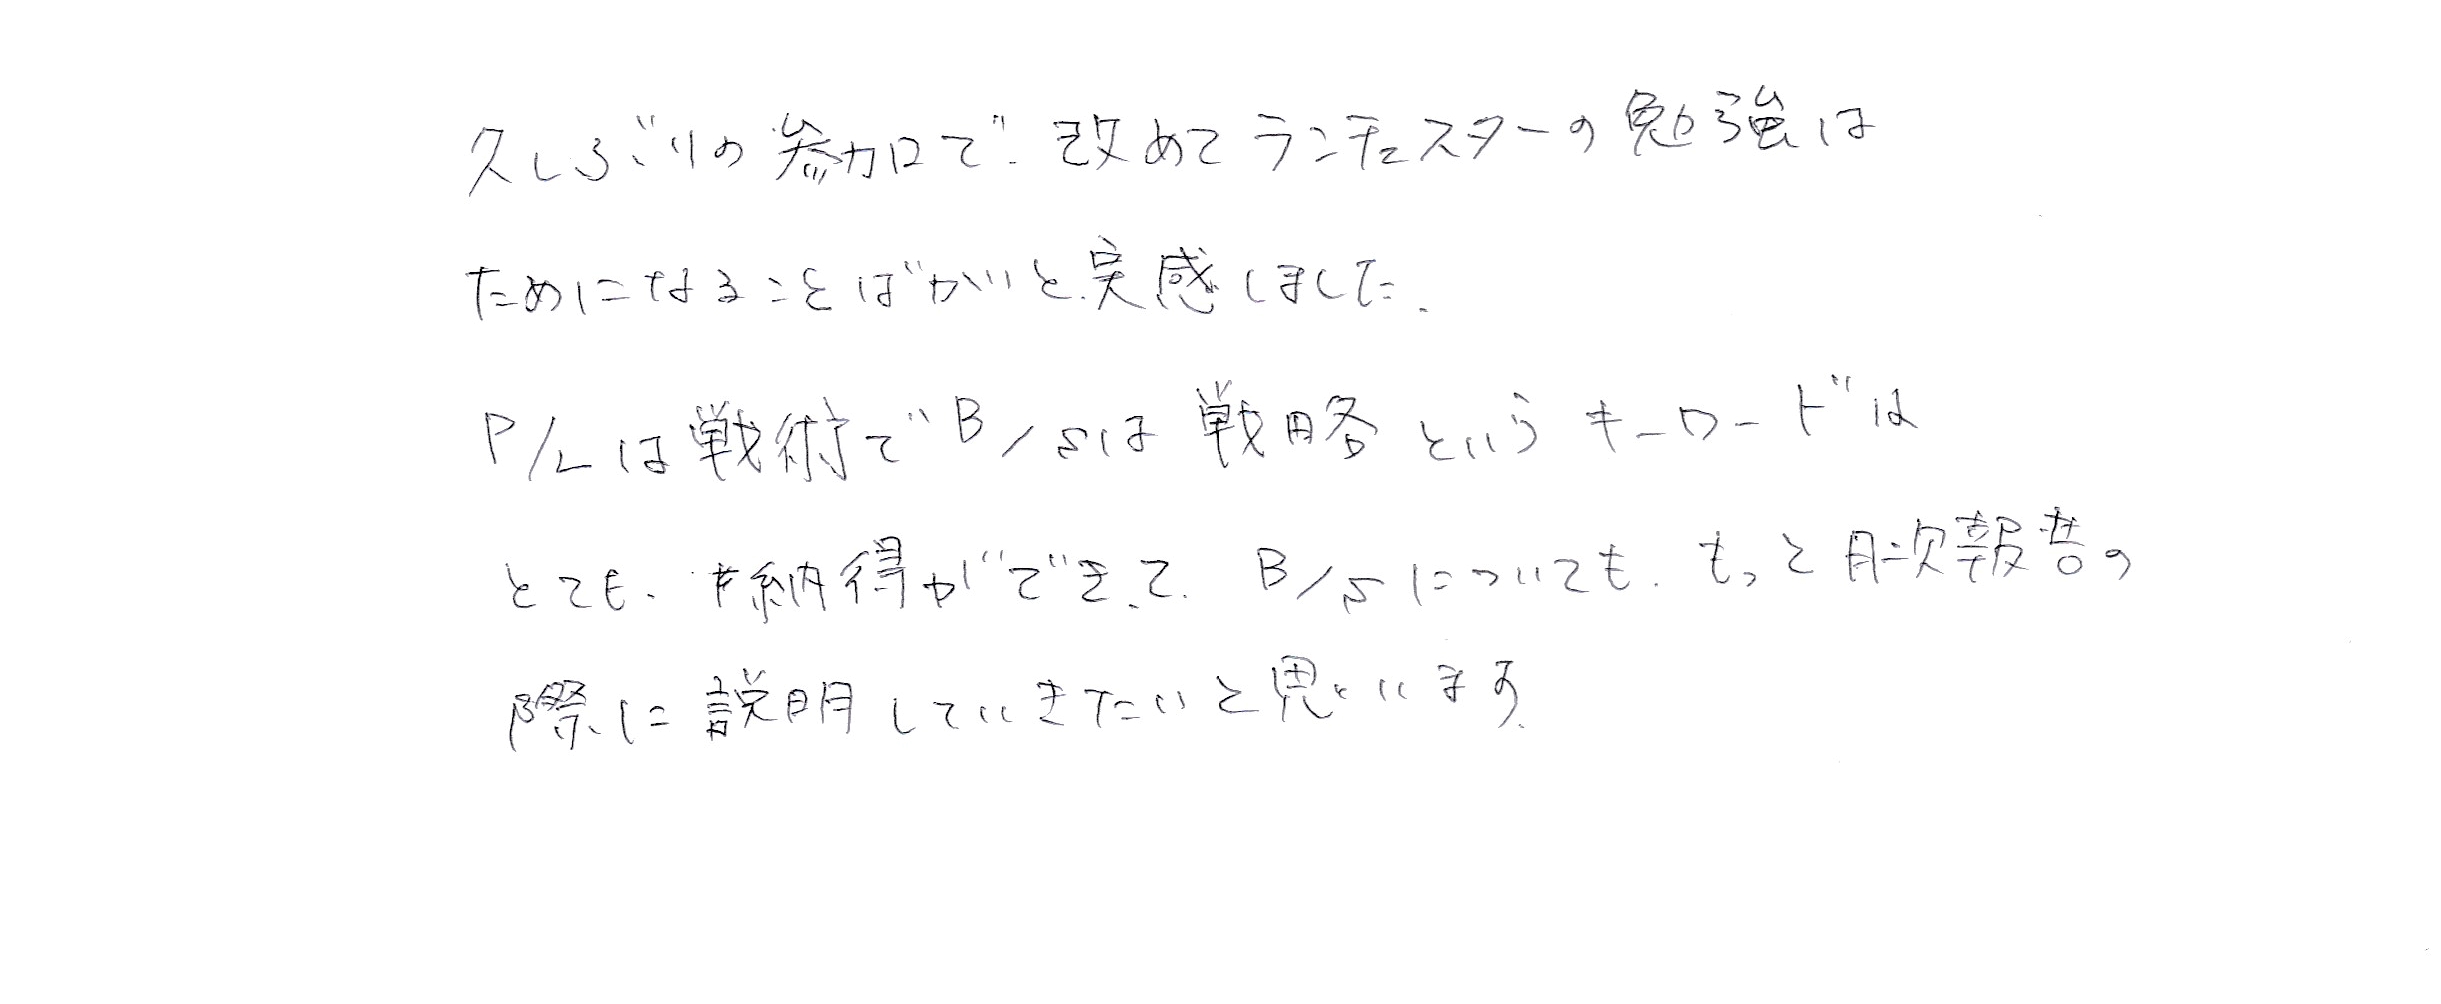 久しぶりの参加で、改めてランチェスターの勉強は
ためになることばかりと実感しました。
P/Lは戦術でB/Sは戦略というキーワードは
とても、納得ができて、B/Sについても、もっと月次報告の
際に説明していきたいと思います。